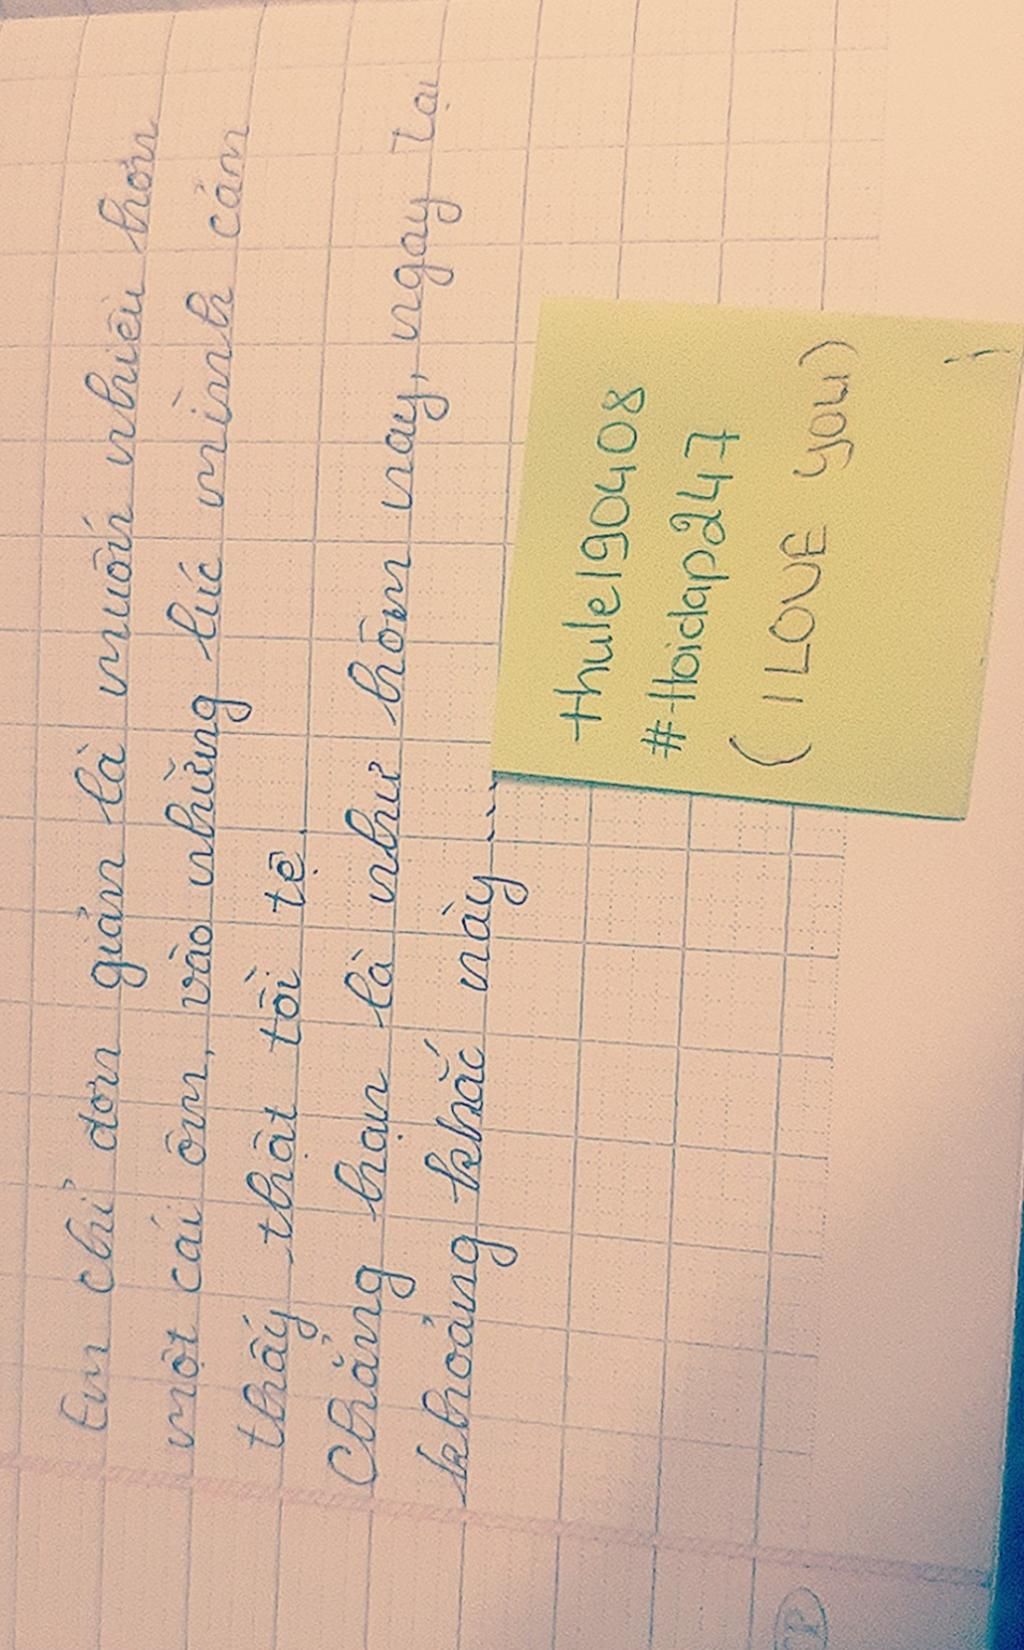 Em chỉ đơn giản là muốn nhiều hơn
một cái ôm, vào những lúc mình cảm
thấy thật tồi tệ.
Chẳng hạn là như hôm nay, ngay tại
khoảng khắc này...
thule190408
#Hoidap247
(I LOVE you)